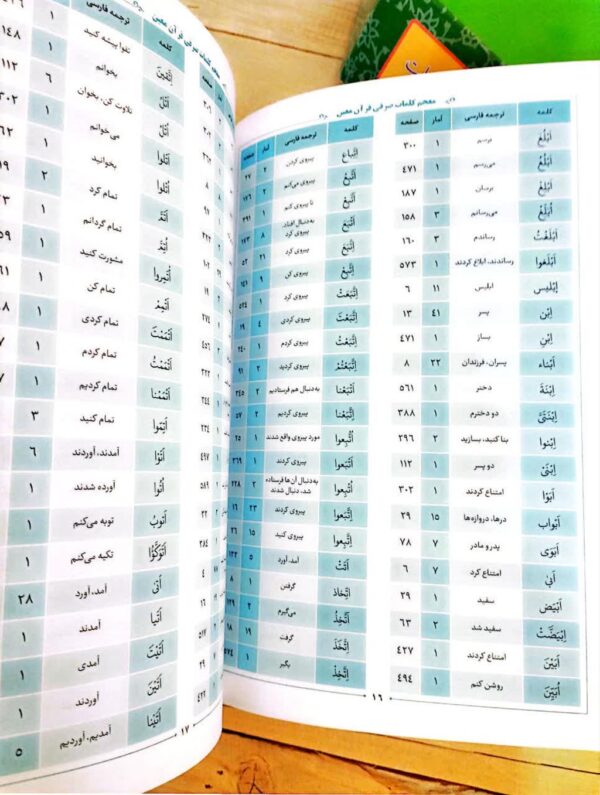 معجم کلمات صرفی قرآن مبین
کلمه ترجمه فارسی آمار صفحه
أَبْلُغَ برسم ۱ ۳۰۰
أَبْلُغُ می‌رسم ۱ ۴۷۱
أَبْلِغْ برسان ۱ ۱۸۷
أُبَلِّغُ می‌رسانم ۳ ۱۵۸
أَبْلَغْتُ رساندم ۳ ۱۶۰
أَبْلَغُوا رساندند، ابلاغ کردند ۱ ۵۷۳
إِبْلِیس ابلیس ۱۱ ۶
اِبْن پسر ۴۱ ۱۳
اِبْنِ بساز ۱ ۴۷۱
أَبْناء پسران، فرزندان ۲۲ ۸
اِبْنَةَ دختر ۱ ۵۶۱
اِبْنَتَیَّ دو دخترم ۱ ۳۸۸
اِبْنُوا بنا کنید، بسازید ۲ ۲۹۶
اِبْنَیْ دو پسر ۱ ۱۱۲
أَبَوْا امتناع کردند ۱ ۳۰۲
أَبْواب درها، دروازه‌ها ۱۵ ۲۹
أَبَوَی پدر و مادر ۷ ۷۸
أَبیٰ امتناع کرد ۷ ۶
أَبْیَض سفید ۱ ۲۹
اِبْیَضَّتْ سفید شد ۲ ۶۳
أَبَیْنَ امتناع کردند ۱ ۴۲۷
أُبَیِّنَ روشن کنم ۱ ۴۹۴
کلمه ترجمه فارسی آمار صفحه
اِتِّباع پیروی کردن ۲ ۲۷
أَتَّبِعُ پیروی می‌کنم ۲ ۱۷۶
أَتَّبِعْ تا پیروی کنم ۱ ۳۹۱
أَتْبَعَ به‌دنبال افتاد، پیروی کرد ۸ ۲۷۳
اِتَّبَعَ پیروی کرد ۲۱ ۵۲
اِتَّبِعْ پیروی کن ۹ ۱۴۱
اِتَّبَعَتْ پیروی کرد ۱ ۵۲۴
اِتَّبَعْتَ پیروی کردی ۴ ۱۹
اِتَّبَعْتُ پیروی کردم ۱ ۲۴۰
اِتَّبَعْتُمْ پیروی کردید ۲ ۹۱
أَتْبَعْنا به‌دنبال هم فرستادیم ۲ ۳۴۵
اِتَّبَعْنا پیروی کردیم ۲ ۵۷
اُتُّبِعُوا مورد پیروی واقع شدند ۱ ۲۵
أَتْبَعُوا پیروی کردند ۱ ۳۶۹
أُتْبِعُوا به‌دنبال آن‌ها فرستاده شد، دنبال شدند ۲ ۲۲۸
اِتَّبَعُوا پیروی کردند ۲۳ ۱۶
اِتَّبِعُوا پیروی کنید ۱۵ ۲۶
أَتَتْ آمد، آورد ۵ ۱۳۲
اِتِّخاذ گرفتن ۱ ۸
أَتَّخِذُ می‌گیرم ۲ ۱۲۹
اِتَّخَذَ گرفت ۱۹ ۱۸
اِتَّخِذْ بگیر ۱ ۵۷۴
۱۶
معجم کلمات صرفی قرآن مبین
کلمه ترجمه فارسی
اِتَّقَیْنَ تقوا پیشه کنید ۱
أَتْلُ بخوانم ۱ ۱۴۸
اُتْلُ تلاوت کن، بخوان ۶ ۱۱۲
أَتْلُوا می‌خوانم ۱ ۳۰۲
اُتْلُوا بخوانید ۱ ۶۲
أَتَمَّ تمام کرد ۲
أُتِمَّ تمام گردانم ۱
أْتَمِرُوا مشورت کنید ۱
أَتْمِمْ تمام کن ۱
أَتْمَمْتَ تمام کردی ۱
أَتْمَمْتُ تمام کردم ۱
أَتْمَمْنا تمام کردیم ۱
أَتِمُّوا تمام کنید ۳
أَتَوْا آمدند، آوردند ۶
أُتُوا آورده شدند ۱
أَتُوبُ توبه می‌کنم ۱
أَتَوَکَّؤُا تکیه می‌کنم ۱
أَتیٰ آمد، آورد ۲۸
أَتَیا آمدند ۱
أَتَیْتَ آمدی ۱
أَتَیْنَ آوردند ۱
أَتَیْنا آمدیم، آوردیم ۵
۱۷